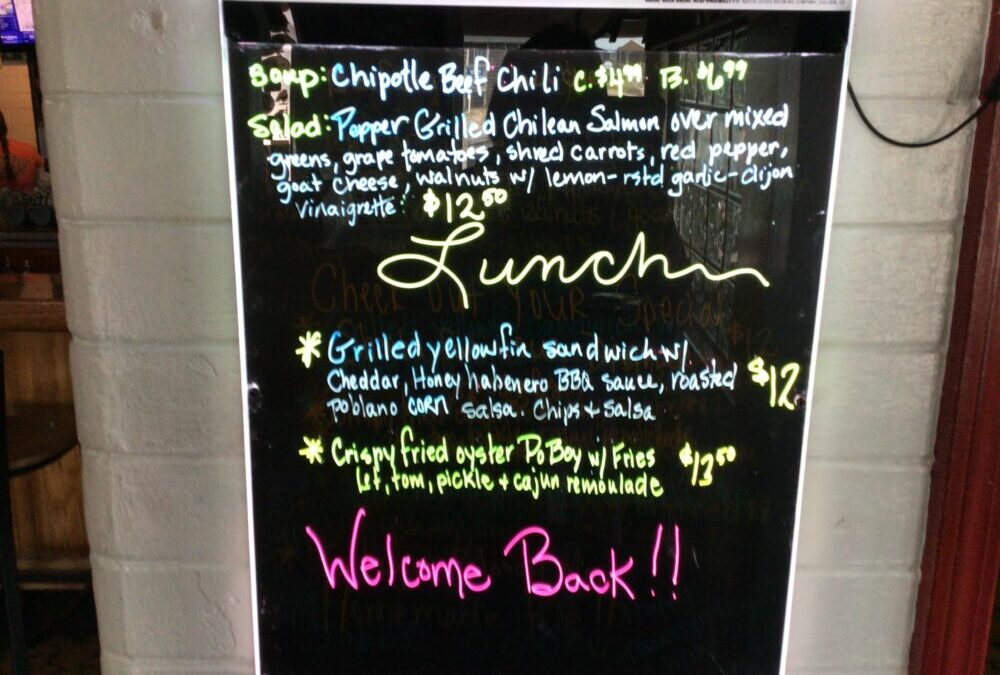 Soup: Chipotle Beef Chili C. $4.99 B. $6.99
Salad: Pepper Grilled Chilean Salmon over mixed
greens, grape tomatoes, shred carrots, red pepper,
goat cheese, walnuts w/ lemon-rstd garlic-dijon
vinaigrette: $12.50
Lunch
* Grilled yellowfin sandwich w/
Cheddar, Honey habenero BBQ sauce, roasted $12
poblano corn salsa. Chips + Salsa
* Crispy fried oyster PoBoy w/ Fries $13.50
Let, tom, pickle + cajun remoulade
Welcome Back!!